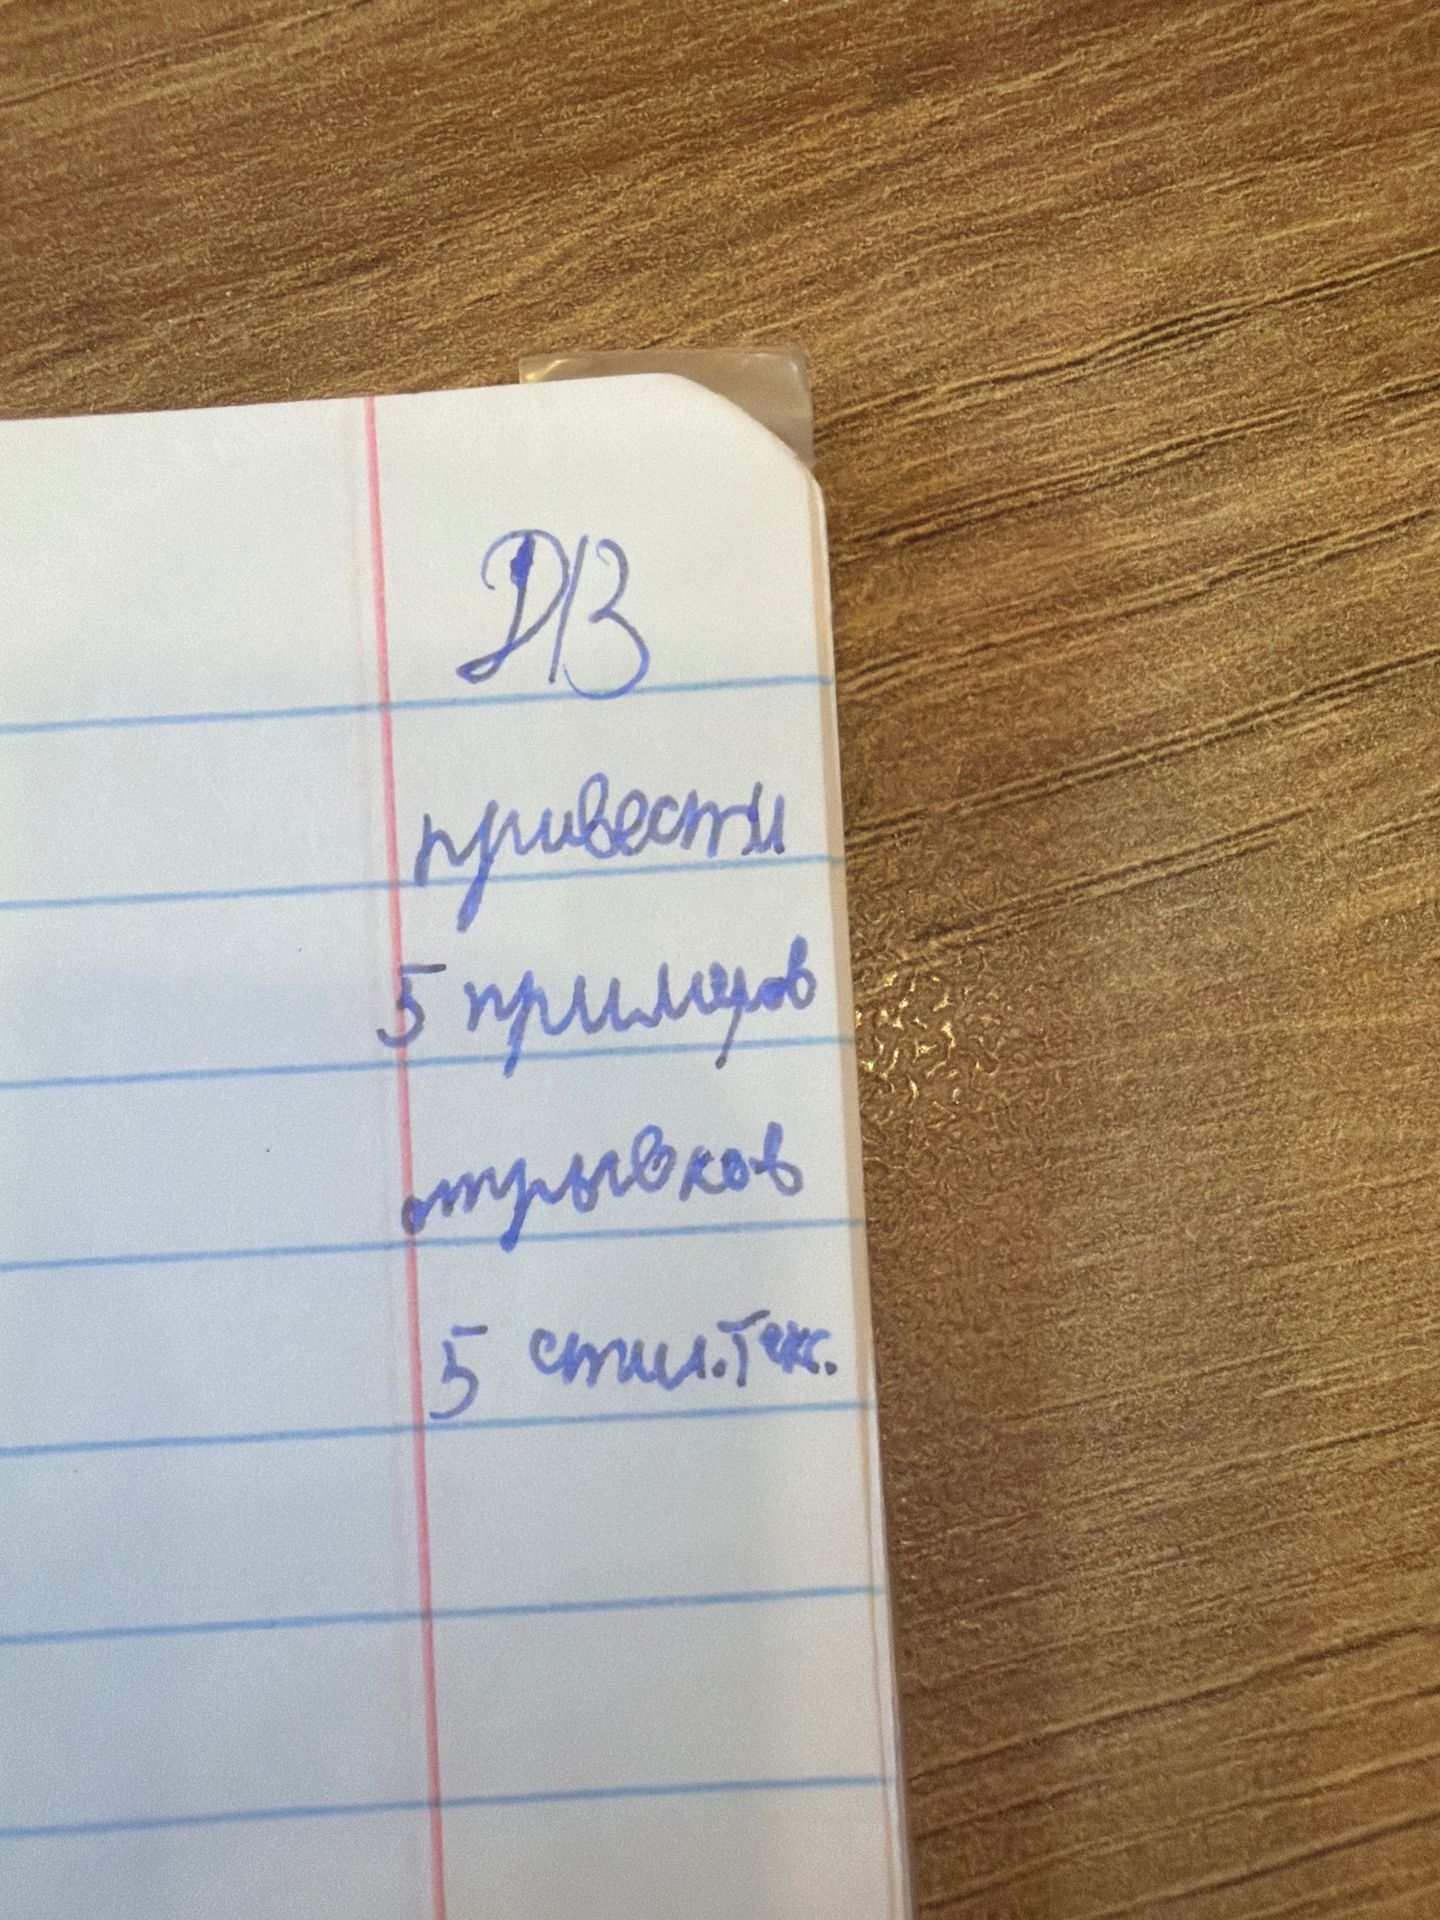 Д/З
привести
5 примеров
отрывков
5 стил. текс.